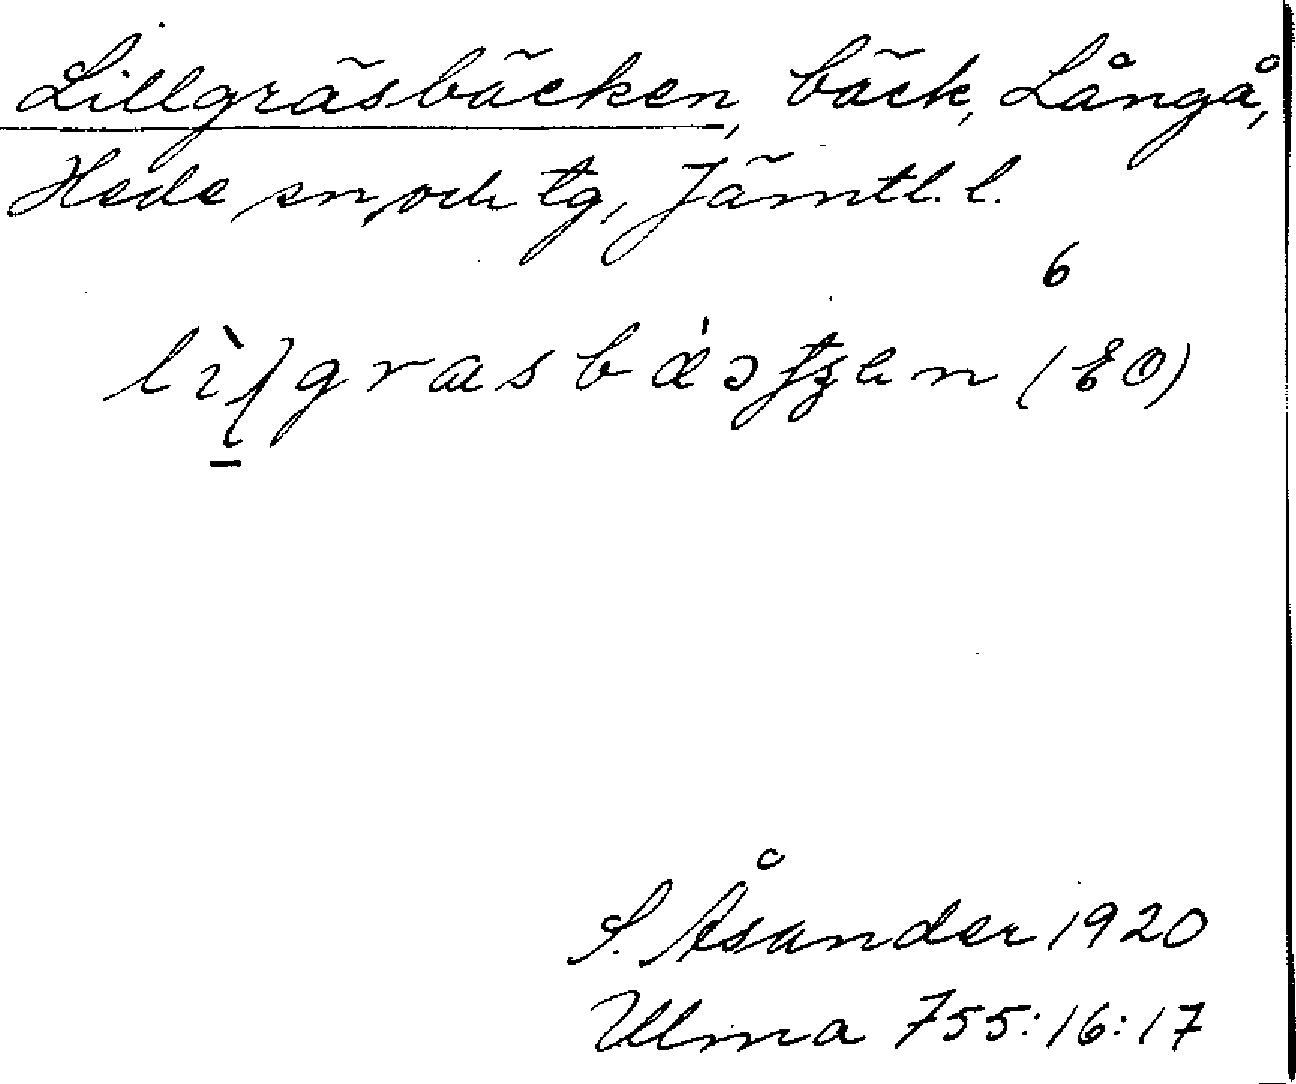 Lillgräsbäcken, bäck, Långå,
Hede sn, och tg, Jämtl. l.
6
(EO)
S. Åsander 1920
Ulma 755:16:17